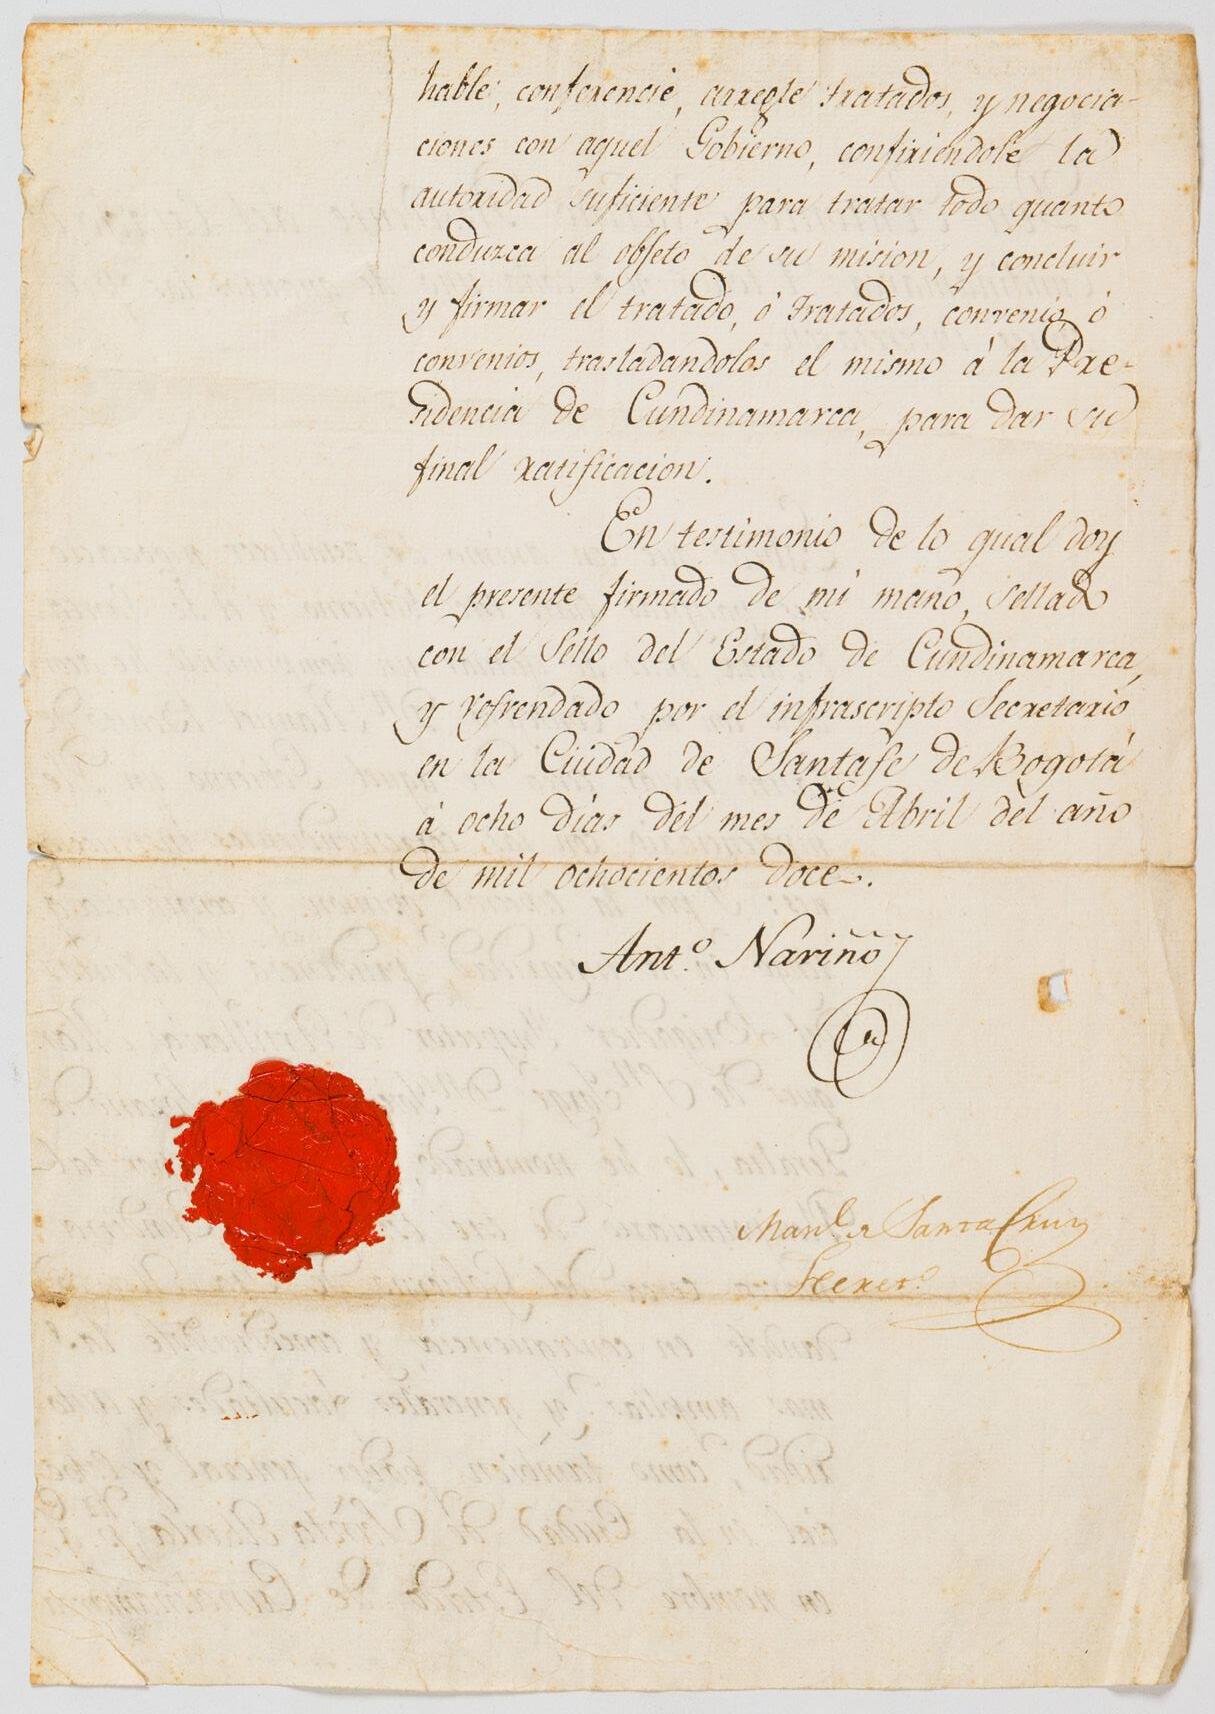 hable, conferencie, arregle tratados, y negocia-
ciones con aquel Gobierno, confiriendole la
autoridad suficiente para tratar todo quanto
conduzca al objeto de su mision, y concluir
y firmar el tratado, ó tratados, convenio, ó
convenios, trasladandolos el mismo á la Pre-
sidencia de Cundinamarca, para dar su
final ratificacion.
En testimonio de lo qual doy
el presente firmado de mi mano, sellado
con el Sello del Estado de Cundinamarca,
y refrendado por el infrascripto Secretario
en la Ciudad de Santafe de Bogotá
á ocho dias del mes de Abril del año
de mil ochocientos doce.
Ant.º Nariño
Man.l de Santa Cruz
Secret.º